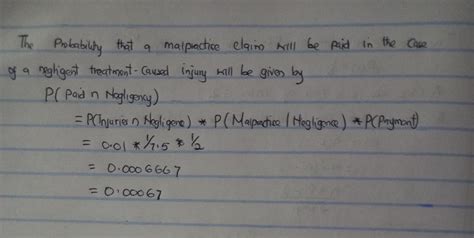 The Probability that a malpractice claim will be Paid in the Case
of a neghigent treatment-caused injury will be given by
P(Paid ∩ Negligency)
= P(Injuries ∩ Negligence) * P(Malpractice / Negligence) * P(Payment)
= 0.01 * 1/7.5 * 1/2
= 0.0006667
= 0.00067